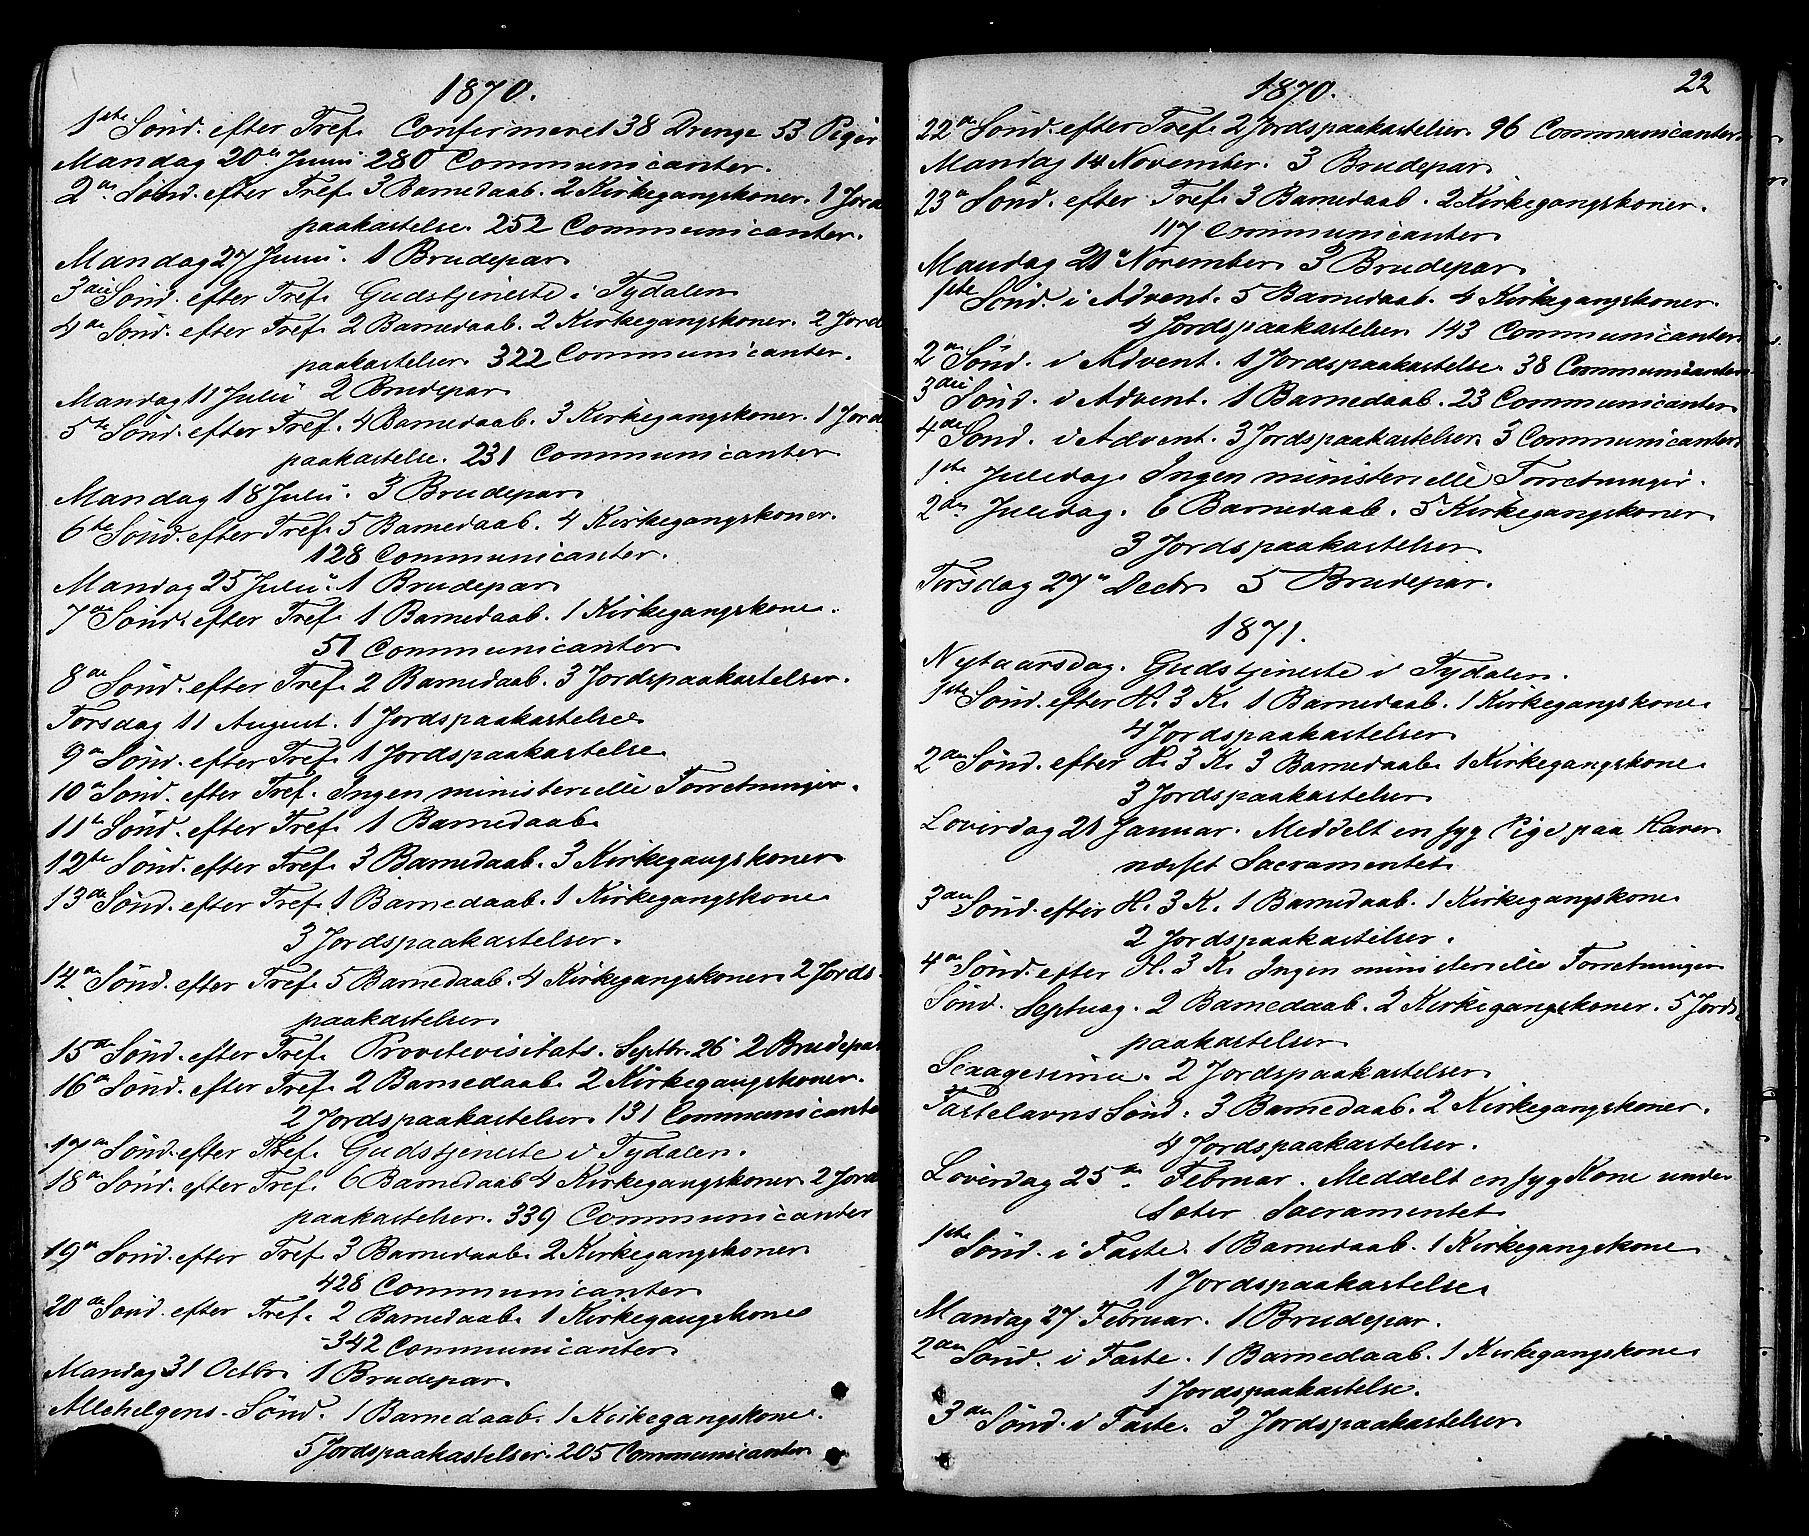 1870.
1ste Sönd. efter Tref. Confirmeret 38 Drenge 53 Piger
Mandag 20de Junii 280 Communicanter.
2den Sönd. efter Tref. 3 Barnedaab. 2 Kirkegangskoner. 1 Jords
paakastelse. 252 Communicanter.
Mandag 27 Junii. 1 Brudepar.
3die Sönd. efter Tref. Gudstjeneste i Tydalen.
4de Sönd. efter Tref. 2 Barnedaab. 2 Kirkegangskoner. 2 Jord
paakastelser. 322 Communicanter.
Mandag 11 Julii 2 Brudepar.
5te Sönd. efter Tref. 4 Barnedaab. 3 Kirkegangskoner. 1 Jord
paakastelse. 231 Communicanter
Mandag 18 Julii. 3 Brudepar.
6te Sönd. efter Tref. 5 Barnedaab. 4 Kirkegangskoner.
128 Communicanter.
Mandag 25 Julii. 1 Brudepar.
7de Sönd. efter Tref. 1 Barnedaab. 1 Kirkegangskone.
51 Communicanter.
8de Sönd. efter Tref. 2 Barnedaab. 3 Jordspaakastelser.
Torsdag 11 August. 1 Jordspaakastelse
9de Sönd. efter Tref. 1 Jordspaakastelse
10de Sönd. efter Tref. Ingen ministerielle Forretninger.
11te Sönd. efter Tref. 1 Barnedaab.
12te Sönd. efter Tref. 3 Barnedaab. 3 Kirkegangskoner
13de Sönd. efter Tref. 1 Barnedaab. 1 Kirkegangskone
3 Jordspaakastelser.
14de Sönd. efter Tref. 5 Barnedaab. 4 Kirkegangskoner. 2 Jords
paakastelser
15de Sönd. efter Tref. Provstevisitats. Septbr. 26 2 Brudepar
16de Sönd. efter Tref. 2 Barnedaab. 2 Kirkegangskoner.
2 Jordspaakastelser. 131 Communicante
17de Sönd. efter Tref. Gudstjeneste i Tydalen.
18de Sönd. efter Tref. 6 Barnedaab 4 Kirkegangskoner. 2 Jords
paakastelser. 339 Communicanter
19de Sönd. efter Tref. 3 Barnedaab. 2 Kirkegangskoner.
428 Communicanter
20de Sönd. efter Tref. 2 Barnedaab. 1 Kirkegangskone
342 Communicanter.
Mandag 31 Octbr. 1 Brudepar.
Allehelgens-Sönd. 1 Barnedaab. 1 Kirkegangskone.
5 Jordspaakastelser. 205 Communicanter
1870.
22
22de Sönd. efter Tref. 2 Jordspaakastelser. 96 Communicanter.
Mandag 14 November. 3 Brudepar.
23de Sönd. efter Tref. 3 Barnedaab. 2 Kirkegangskoner.
117 Communicanter.
Mandag 21de November. 3 Brudepar.
1ste Sönd. i Advent. 5 Barnedaab. 4 Kirkegangskoner.
4 Jordspaakastelser. 143 Communicanter.
2den Sönd. i Advent. 1 Jordspaakastelse. 38 Communicanter
3die Sönd. i Advent. 1 Barnedaab. 23 Communicanter
4de Sönd. i Advent. 3 Jordspaakastelser. 3 Communicanter
1ste Juledag. Ingen ministerielle Forretninger.
2den Juledag. 6 Barnedaab. 5 Kirkegangskoner
3 Jordspaakastelser.
Torsdag 27de Decbr. 5 Brudepar.
1871.
Nytaarsdag. Gudstjeneste i Tydalen.
1ste Sönd. efter H. 3 K. 1 Barnedaab. 1 Kirkegangskone.
4 Jordspaakastelser.
2den Sönd. efter H. 3 K. 3 Barnedaab. 1 Kirkegangskone.
3 Jordspaakastelser.
Löverdag 21 Januar. Meddelt en syg Pige paa
Sacramentet.
3die Sönd. efter H. 3 K. 1 Barnedaab. 1 Kirkegangskone
2 Jordspaakastelser.
4de Sönd. efter H. 3 K. Ingen ministerielle Forretninger
Sönd. Septuag. 2 Barnedaab. 2 Kirkegangskoner. 5 Jords
paakastelser.
Sexagesima. 2 Jordspaakastelser.
Fastelavns Sönd. 3 Barnedaab. 2 Kirkegangskoner.
4 Jordspaakastelser.
Löverdag 25de Februar. Meddelt en syg Kone under
Sæter Sacramentet.
1ste Sönd. i Faste. 1 Barnedaab. 1 Kirkegangskone
1 Jordspaakastelse.
Mandag 27 Februar. 1 Brudepar.
2den Sönd. i Faste. 1 Barnedaab. 1 Kirkegangskone.
1 Jordspaakastelse.
3die Sönd. i Faste. 3 Jordspaakastelser